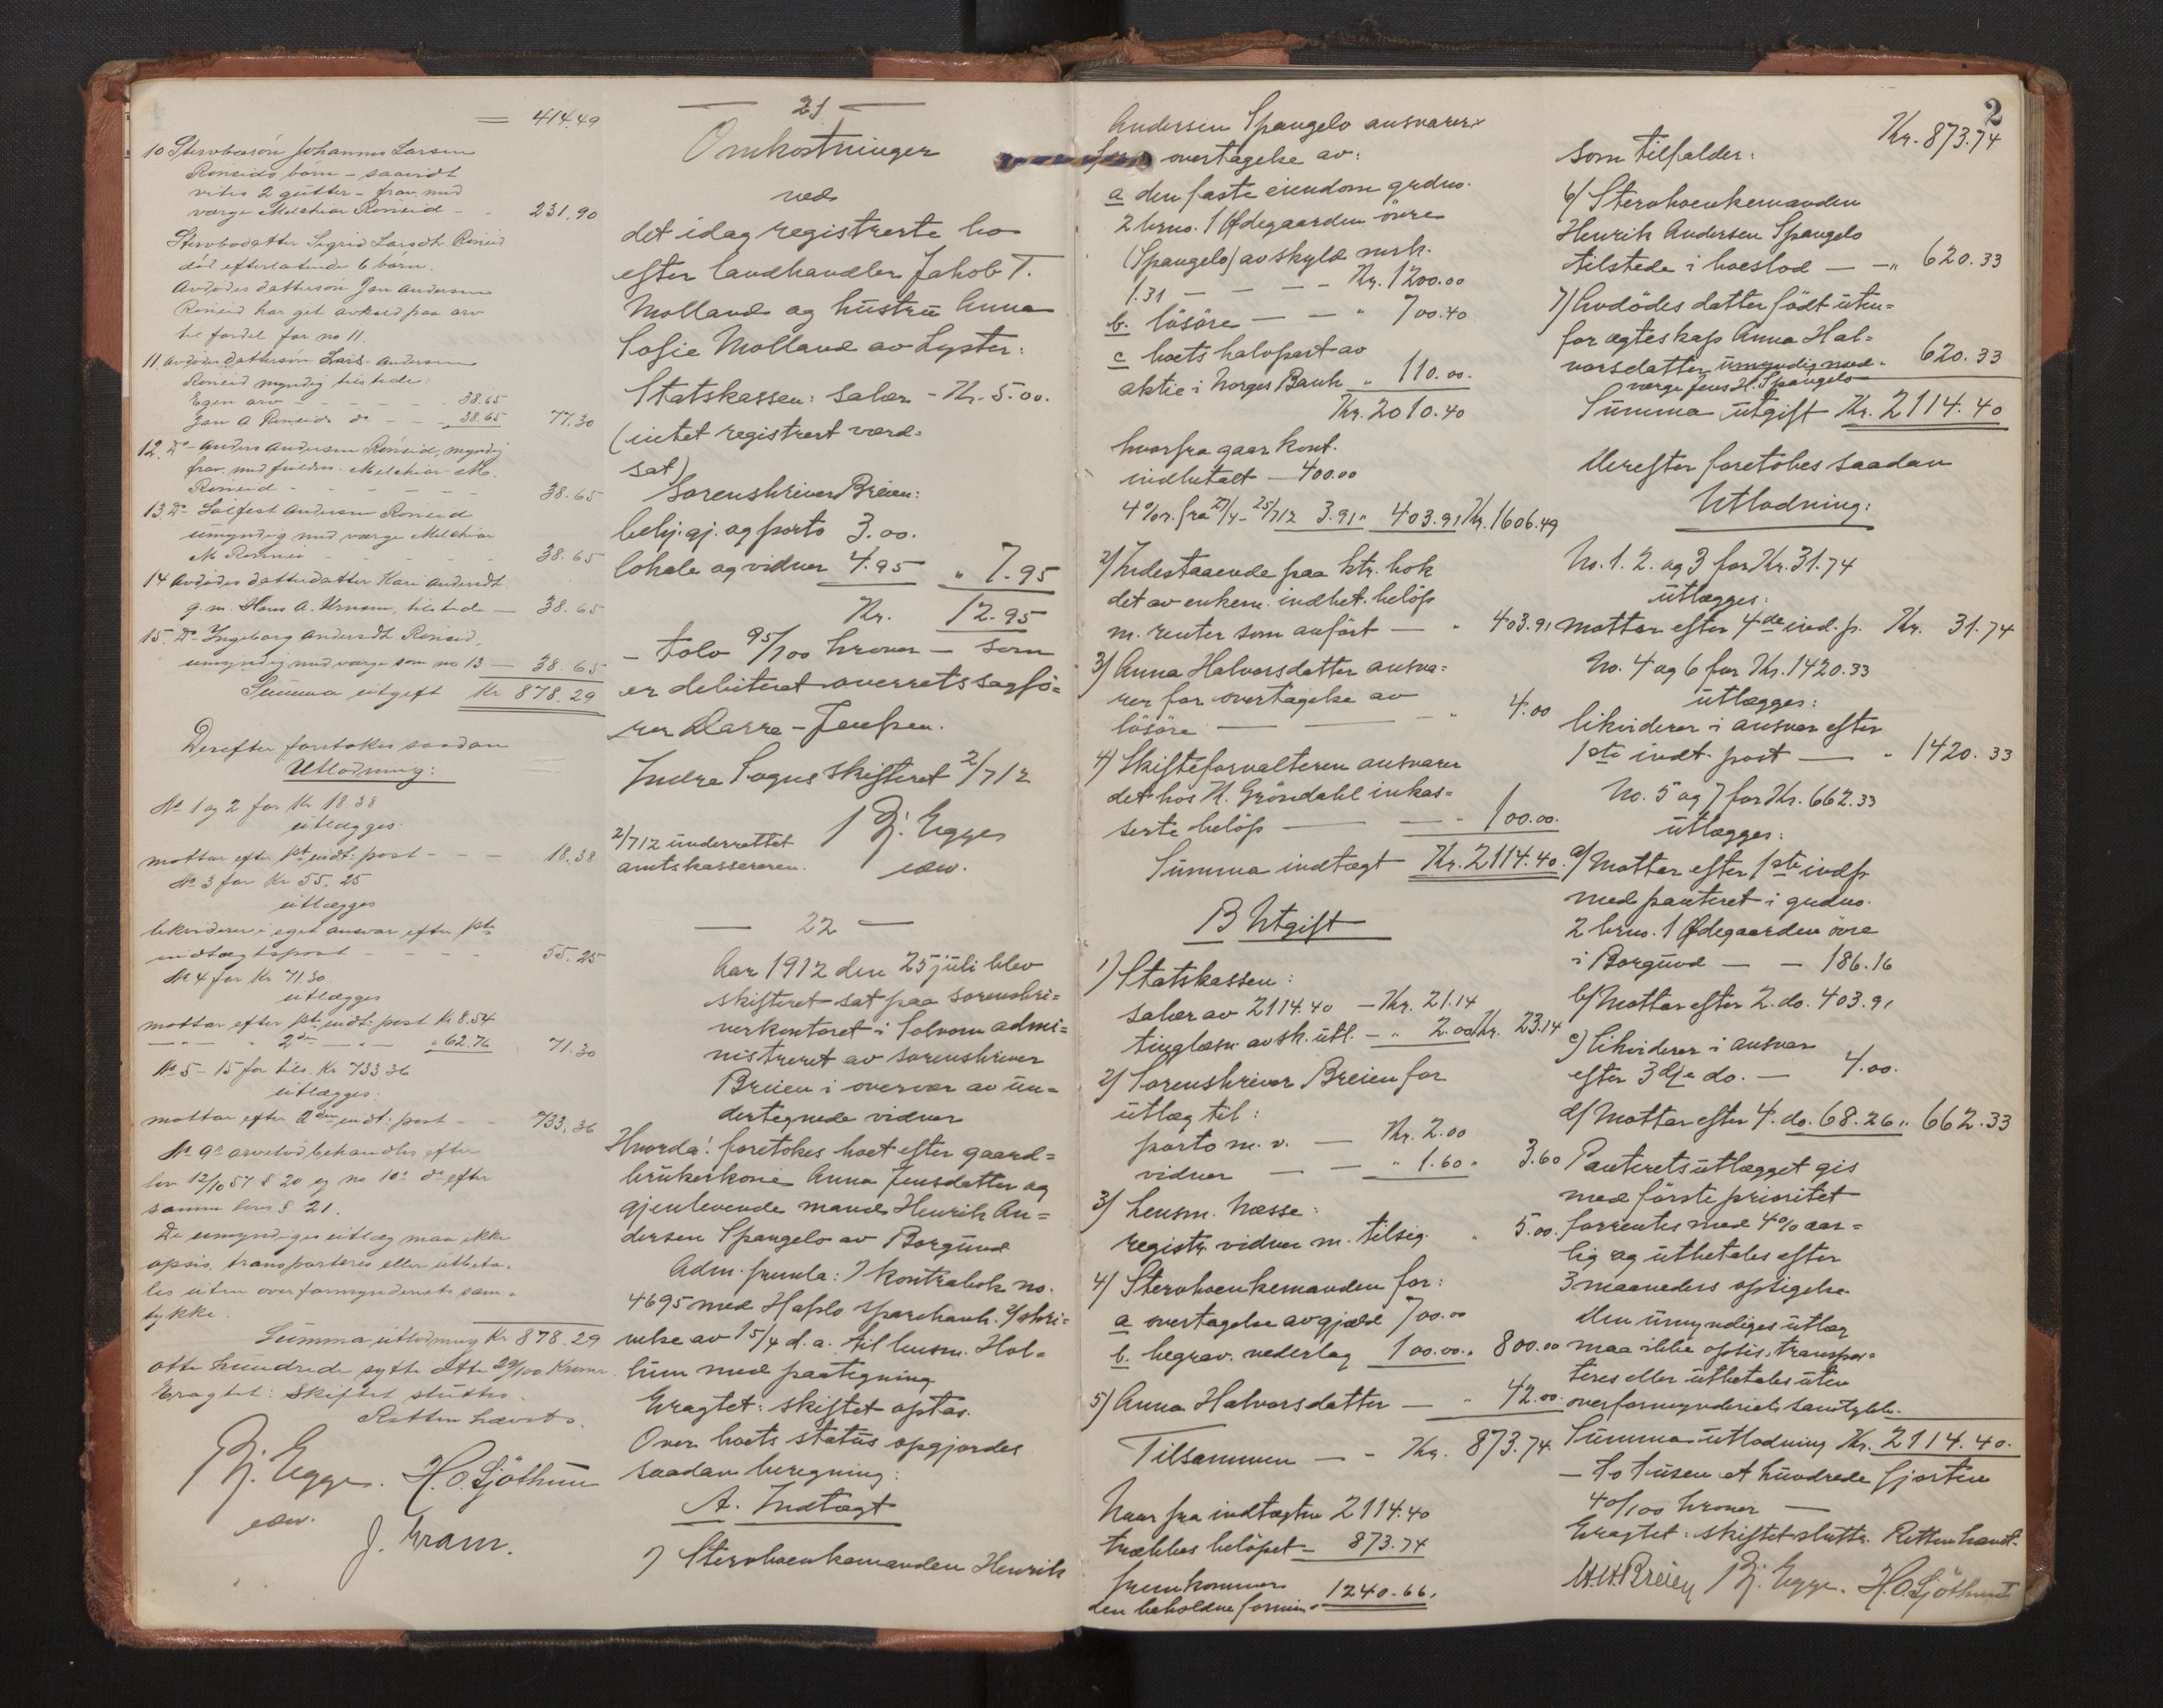 = 414.49
10 Stervbosøn Johannes Larsen
Røneids børn - saavidt
vites 2 gutter - frav. med
værge Melchior Røneid - - 231.90
Stervbodatter Sigrid Larsdtr. Røneid
død efterlatende 6 børn.
Avdødes dattersøn Jan Andersen
Røneid har git avkald paa arv
til fordel for no 11.
11 avdødes dattersøn Lars Andersen
Røneid myndig tilstede:
Egen arv - - - - - 38.65
Jan A Røneids do - - - 38.65 77.30
12. Do - Anders Andersen Røneid, myndig
frav. med fuldm. Melchior M.
Røneid - - - - - - 38.65
13. Do Solfest Andersen Røneid
umyndig med værge Melchior
M Røneid - - - - - 38.65
14 avdødes datterdatter Kari Andersdt
g.m. Hans A. Urnes, tilstede - 38.65
15. Do - Ingeborg Andersdt. Røneid,
umyndig med værge som no 13 - 38.65
Summa utgift Kr 878.29
Derefter foretokes saadan
Utlodning:
No 1 og 2 for Kr 18.38
utlægges:
mottar efter 1ste indt: post - - - 18.38
No 3 for Kr 55.25
utlægges
likviderer i eget ansvar efter 1ste
indtægtspost - - - - 55.25
No 4 for Kr 71.30
utlægges
mottar efter 1ste indt: post Kr 8.54
-"- " 2den -"- " 62.76 71.30
No 5 - 15 for tils. Kr 733.36
utlægges:
mottar efter 2den indt: post - - 733.36
No 9s arvelod behandles efter
lov 12/10 57 § 20 og no 10s do efter
samme lovs § 21.
De umyndiges utlæg maa ikke
opsis, transporteres eller utbeta-
les uten overformynderiets sam-
tykke.
Summa utlodning Kr 878.29
otte hundrede sytti otte 29/100 Kroner
Eragtet: Skiftet sluttes.
Retten hævet.
Bj. Egge. H.O. Sjøthun
edsv.
J. Kram.
— 21 —
Omkostninger
ved
det idag registrerte bo
efter landhandler Jakob T.
Molland og hustru Anna
Sofie Molland av Lyster:
Statskassen: salær - Kr. 5.00.
(intet registrert værd-
sat)
Sorenskriver Breien:
behj. gj. og porto 3.00.
lokale og vidner 4.95 " 7.95
Kr. 12.95
- tolv 95/100 kroner - som
er debiteret overretssagfø-
rer Darre-Jenssen.
Indre Sogns skifteret 2/7 12
Bj. Egge
edsv.
2/7 12 underrettet
amtskassereren.
— 22 —
Aar 1912 den 25 juli blev
skifteret sat paa sorenskri-
verkontoret i Solvorn admi-
nistreret av sorenskriver
Breien i overvær av un-
dertegnede vidner
Hvorda! foretokes boet efter gaard-
brukerkone Anna Jensdatter og
gjenlevende mand Henrik An-
dersen Spangelo av Borgund
Adm. fremla: 1 kontrabok no.
4695 med Hafslo sparebank. 2/ skri-
velse av 15/4 d.a. til lensm. Hol-
lum med paategning
Eragtet: skiftet optas.
Over boets status opgjordes
saadan beregning:
A. Indtægt
1) Stervboenkemanden Henrik
2
Andersen Spangelo ansvarer
for overtagelse av:
a den faste eiendom grdno.
2 brno. 1 Ødegaarden øvre
(Spangelo) av skyld mrk.
1.31 - - - - Kr. 1200.00
b. løsøre - - - " 700.40
c boets halvpart av
aktie i Norges Bank " 110.00.
Kr. 2010.40
hvorfra gaar kont.
indbetalt - 400.00
4% r. fra 27/4 - 25/7 12 3.91 " 403.91 Kr. 1606.49
2) Indestaaende paa ktr. bok
det av enkem. indbet. beløp
m. renter som anført - " 403.91
3) Anna Halvorsdatter ansva-
rer for overtagelse av
løsøre - - - " 4.00
4) Skifteforvalteren ansvarer
det hos N. Grøndahl inkas-
serte beløp - - " 100.00.
Summa indtægt Kr. 2114.40.
B Utgift
1) Statskassen:
salær av 2114.40 - Kr. 21.14
tinglæsn. av sk. utl. - " 2.00 Kr. 23.14
2) Sorenskriver Breien for
utlæg til:
porto m.v. - Kr. 2.00
vidner - - " 1.60 " 3.60
3) Lensm. Næsse:
registr. vidner m. tilsig. " 5.00.
4) Stervboenkemanden for:
a overtagelse av gjæld 700.00
b. begrav. vederlag 100.00. " 800.00
5) Anna Halvorsdatter - " 42.00.
Tilsammen - - Kr. 873.74.
Naar fra indtægten 2114.40
trækkes beløpet - 873.74
fremkommer
den beholdne formue 1240.66.
Kr. 873.74
som tilfalder:
6) Stervboenkemanden
Henrik Andersen Spangelo
tilstede i boeslod - - " 620.33
7) Avdødes datter født uten-
for ægteskap Anna Hal-
vorsdatter umyndig med- 620.33
værge Jens H. Spangelo
Summa utgift Kr. 2114.40
Derefter foretokes saadan
Utlodning:
No. 1. 2. og 3 for Kr. 31.74
utlægges:
mottar efter 4de ind. p. Kr. 31.74
No. 4 og 6 for Kr. 1420.33
utlægges:
likviderer i ansvar efter
1ste indt. post - " 1420.33
No. 5 og 7 for Kr. 662.33
utlægges:
a) Mottar efter 1ste indp.
med panteret i grdno.
2 brno. 1 Ødegaarden øvre
i Borgund - - 186.16
b) Mottar efter 2. do. 403.91
c) likviderer i ansvar
efter 3dje do. - 4.00.
d) Mottar efter 4. do. 68.26 " 662.33
Panteretsutlægget gis
med første prioritet
forrentes med 4% aar-
lig og utbetales efter
3 maaneders opsigelse.
Den umyndiges utlæg
maa ikke opsis, transpor-
teres eller utbetales uten
overformynderiets samtykke.
Summa utlodning Kr. 2114.40.
- to tusen et hundrede fjorten
40/100 kroner -
Eragtet: skiftet slutte. Retten hævet.
Breien Bj. Egge. H.O. Sjøthun